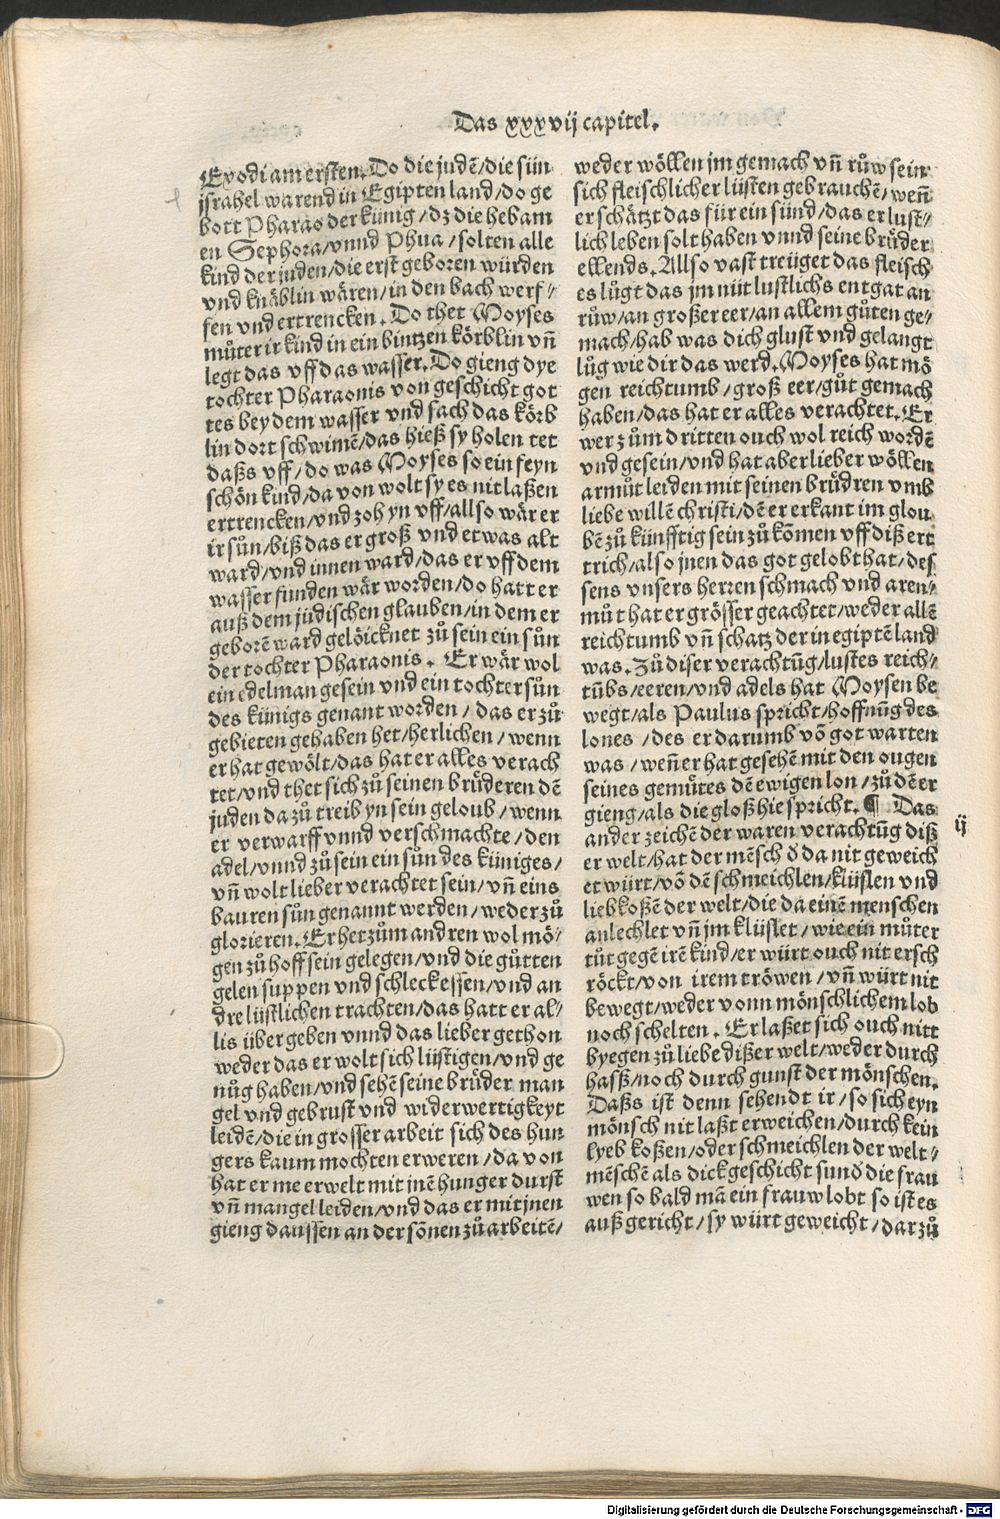 Das xxxvij capitel.
Exodi am ersten. Do die judē/die sün
jsrahel warend in Egipten land/do ge
bott Pharao der künig/dz die hebam
en Sephora/vnnd Phua/solten alle
kind der juden/die erst geboren würden
vnd knäblin wären/in den bach werf-
fen vnd ertrencken. Do thet Moyses
můter ir kind in ein bintzen körblin vñ
legt das vff das wasser. Do gieng dye
tochter Pharaonis von geschicht got
tes bey dem wasser vnd sach das körb
lin dort schwimē/das hieß sy holen tet
daßs vff/do was Moyses so ein feyn
schön kind/da von wolt sy es nit laßen
ertrencken/vnd zoh yn vff/allso wär er
ir sůn/biß das er groß vnd etwas alt
ward/vnd innen ward/das er vff dem
wasser funden wär worden/do hatt er
auß dem jüdischen glauben/in dem er
geborē ward gelöicknet zů sein ein sůn
der tochter Pharaonis. Er wär wol
ein edelman gesein vnd ein tochter sůn
des künigs genant worden/das er zů
gebieten gehaben het/herlichen/wenn
er hat gewölt/das hat er alles verach
tet/vnd thet sich zů seinen brüderen dē
juden da zů treib yn sein geloub/wenn
er verwarff vnnd verschmachte/den
adel/vnnd zů sein ein sůn des küniges/
vñ wolt lieber verachtet sein/vñ eins
bauren sůn genannt werden/weder zů
glorieren. Er het zům andren wol mö-
gen zů hoff sein gelegen/vnd die gůtten
gelen suppen vnd schleckessen/vnd an
dre lüstlichen trachten/das hatt er al-
lis übergeben vnnd das lieber gethon
weder das er wolt sich lüstigen/vnd ge
nůg haben/vnd sehē seine brüder man
gel vnd gebrust vnd widerwertigkeyt
leidē/die in grosser arbeit sich des hun
gers kaum mochten erweren/da von
hat er me erwelt mit jnē hunger durst
vñ mangel leiden/vnd das er mit jnen
gieng daussen an der sönen zů arbeitē/
weder wöllen jm gemach vñ růw sein
sich fleischlicher lüsten gebrauchē/weñ
er schätzt das für ein sünd/das er lust-
lich leben solt haben vnnd seine brüder
ellends. Allso vast treüget das fleisch
es lůgt das jm nüt lustlichs entgat an
růw/an großer eer/an allem gůten ge-
mach/hab was dich glust vnd gelangt
lůg wie dir das werd. Moyses hat mö
gen reichtumb/groß eer/gůt gemach
haben/das hat er alles verachtet. Er
wer zům dritten ouch wol reich wordē
vnd gesein/vnd hat aber lieber wöllen
armůt leiden mit seinen brüdren vmb
liebe willē christi/dē er erkant im glou
bē zů künfftig sein zů kōmen vff diß ert
trich/also jnen das got gelobt hat/des
sens vnsers herren schmach vnd aren-
můt hat er grösser geachtet/weder allē
reichtumb vñ schatz der in egiptē land
was. Zů diser verachtūg/lustes reich-
tūbs/eeren/vnd adels hat Moysen be
wegt/als Paulus spricht/hoffnūg des
lones/des er darumb vō got warten
was/weñ er hat gesehē mit den ougen
seines gemütes dē ewigen lon/zů dē er
gieng/als die gloß hie spricht. ¶ Das
ij
ander zeichē der waren verachtūg diß
er welt/hat der mēsch ð da nit geweich
et würt/vō dē schmeichlen/klüslen vnd
liebkoßē der welt/die da einē menschen
anlechlet vñ jm klüslet/wie ein můter
tůt gegē irē kind/er würt ouch nit ersch
röckt/von irem tröwen/vñ würt nit
bewegt/weder vonn mönschlichem lob
noch schelten. Er laßet sich ouch nitt
byegen zů liebe dißer welt/weder durch
hasß/noch durch gunst der mönschen.
Daßs ist denn sehendt ir/so sich eyn
mönsch nit laßt erweichen/durch kein
lyeb koßen/oder schmeichlen der welt-
mēschē als dick geschicht sunð die frau
wen so bald mā ein frauw lobt so ist es
auß gericht/sy würt geweicht/dar zů
Digitalisierung gefördert durch die Deutsche Forschungsgemeinschaft - DFG